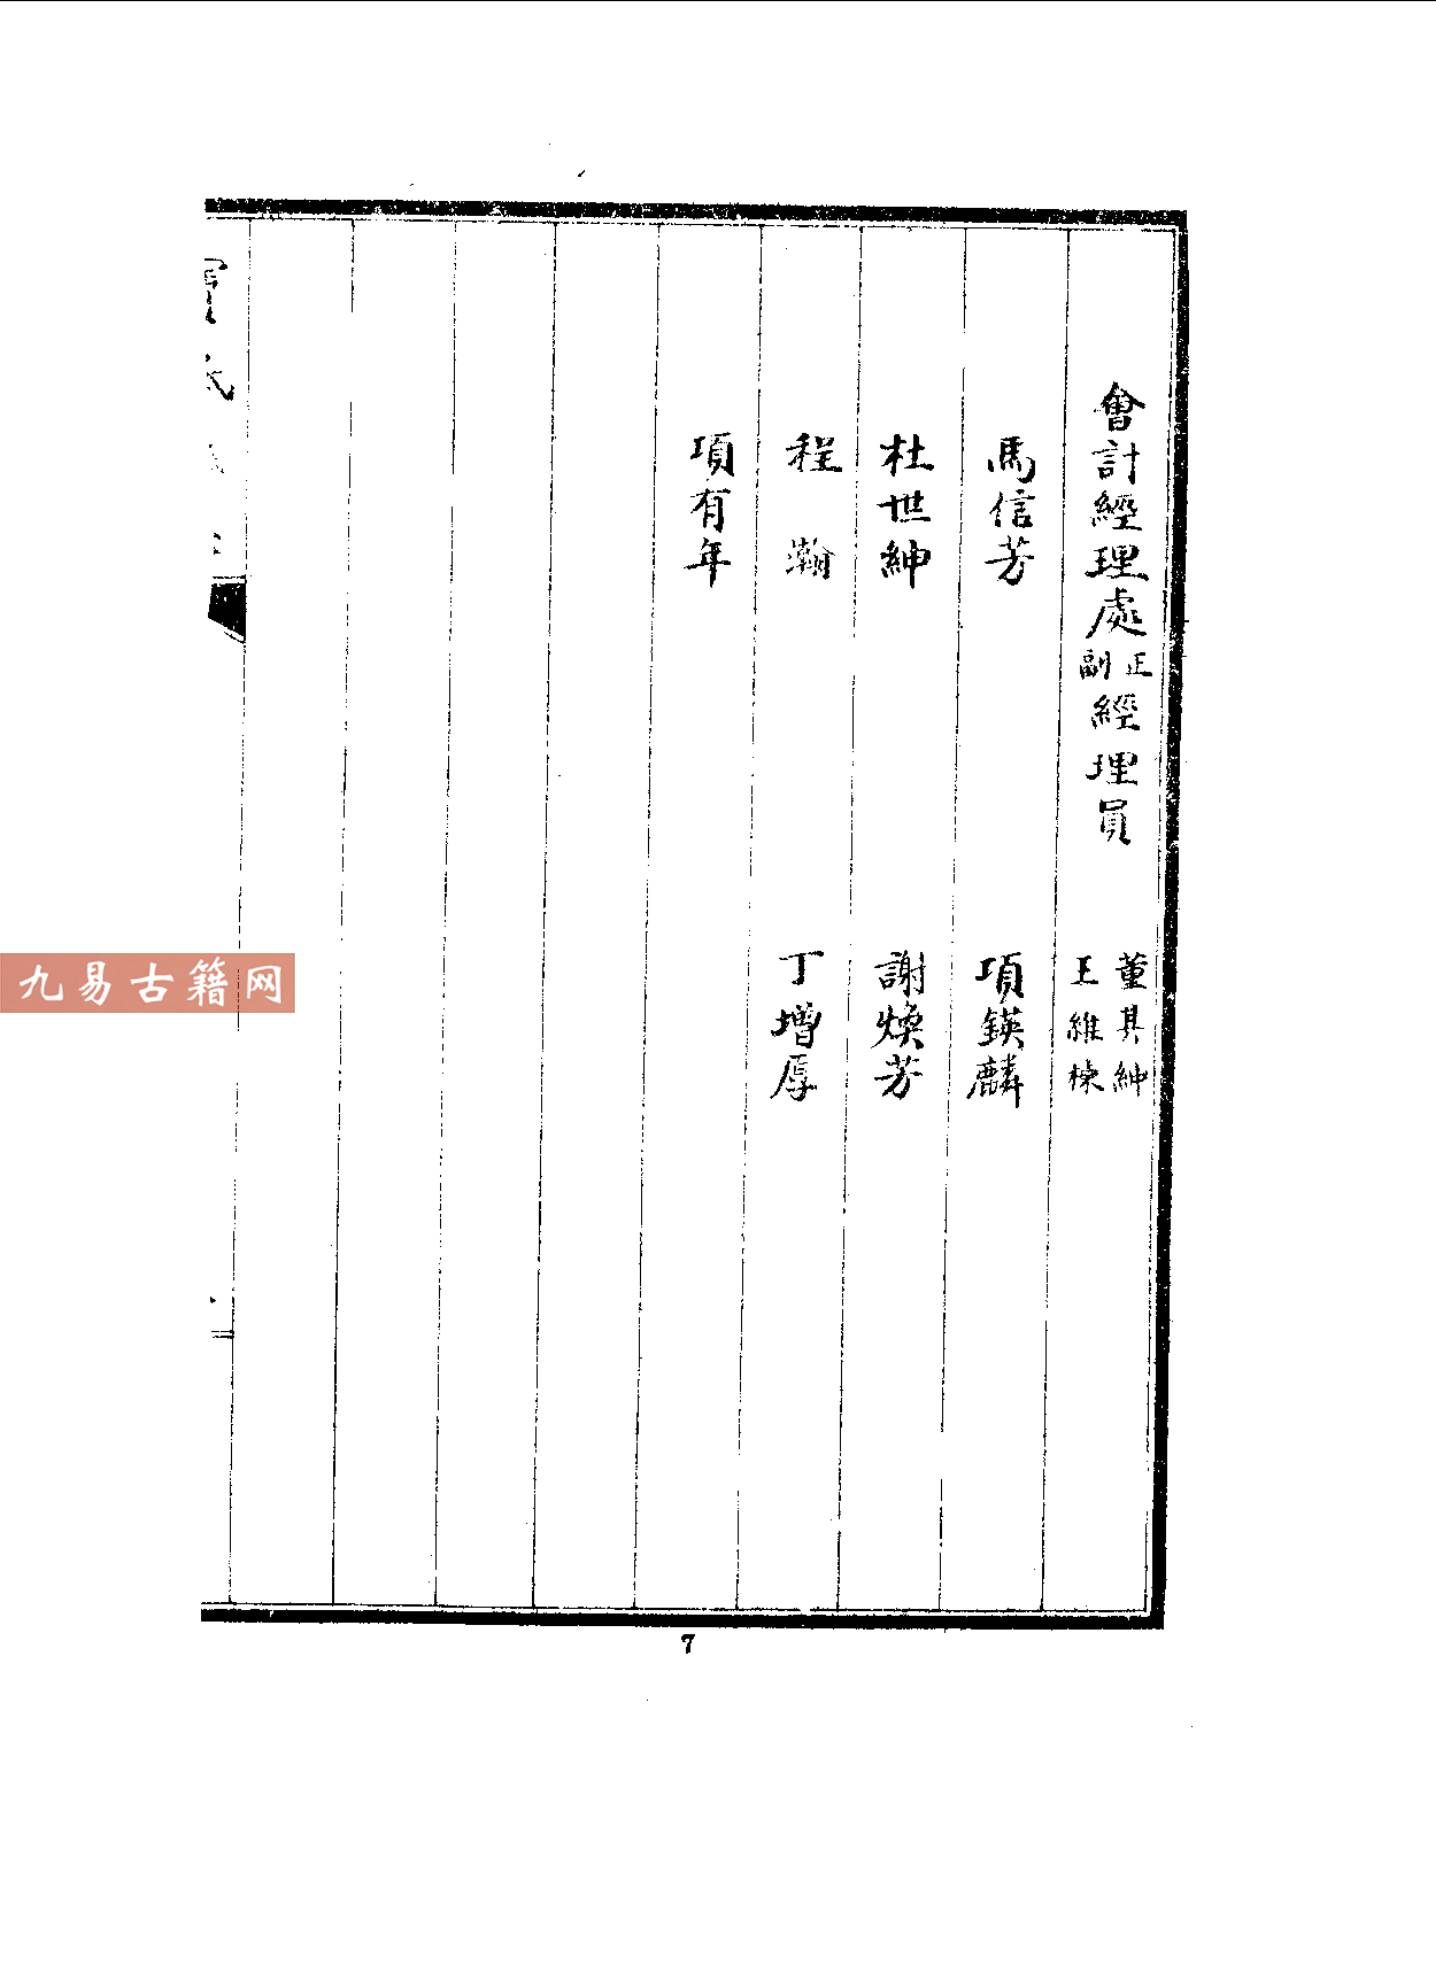 會計經理處正副經理員　董其紳　王維棟
馬信芳　項鍈麟
杜世紳　謝煥芳
程瀚　丁增厚
項有年
7
九易古籍网